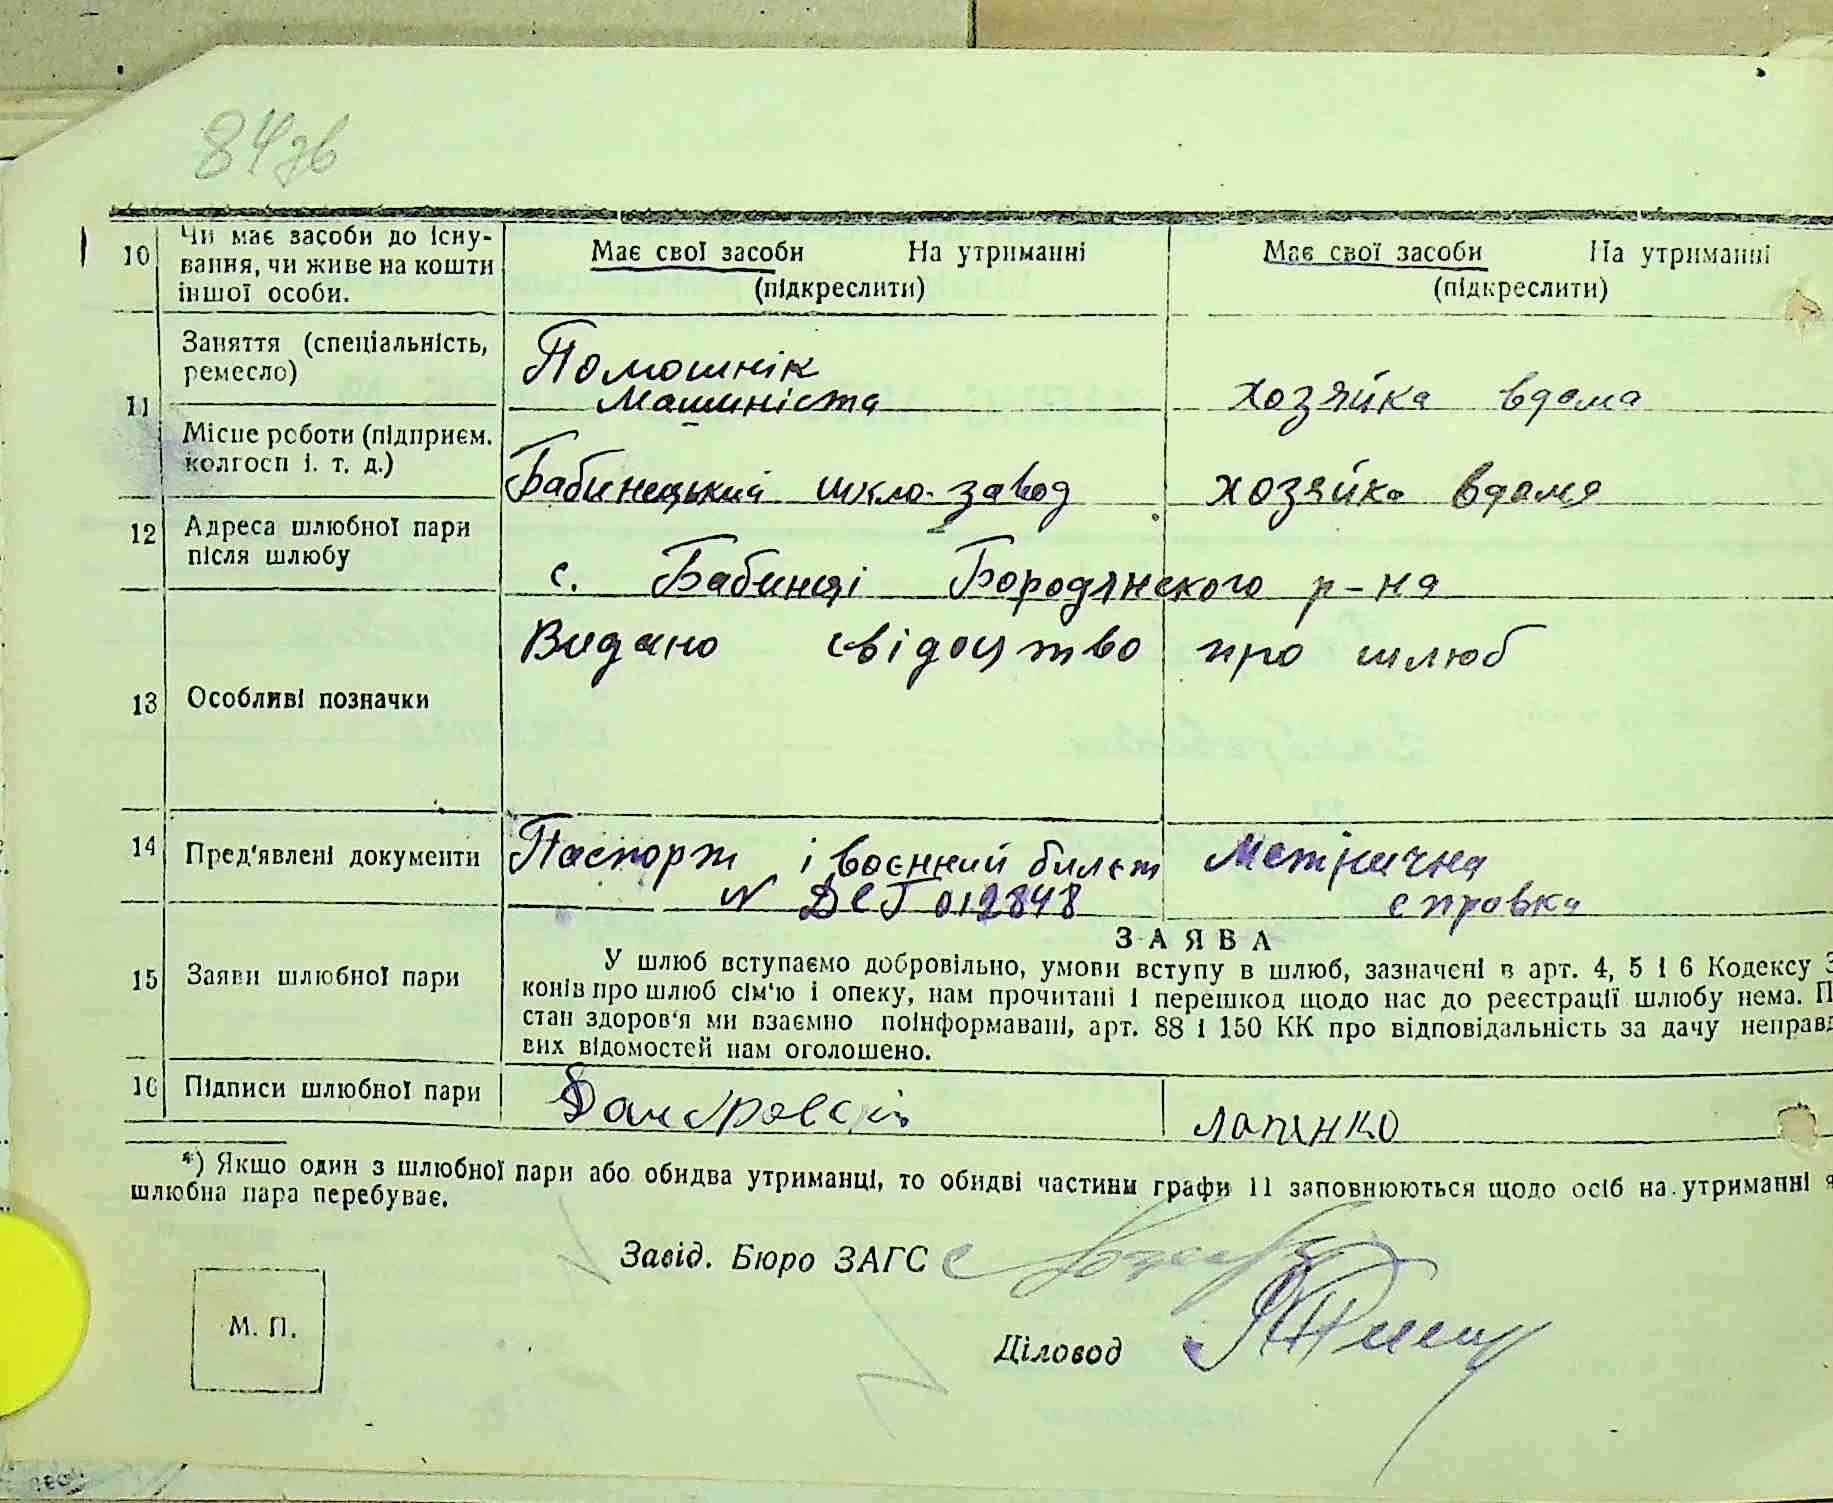 84зв
10 Чи має засоби до існу-
вання, чи живе на кошти
іншої особи.
Має свої засоби На утриманні
(підкреслити)
Має свої засоби На утриманні
(підкреслити)
11 Заняття (спеціальність,
ремесло)
Помошнік
Машиніста
хозяйка вдома
Місце роботи (підприєм.
колгосп і. т. д.)
Бабинецький шкло-завод
хозяйка вдома
12 Адреса шлюбної пари
після шлюбу
с. Бабинці Бородянского р-на
13 Особливі позначки
Видано свідоцтво про шлюб
14 Пред'явлені документи
Паспорт і воєнний билєт
N ДСГ 012848
Метрична
справка
15 Заяви шлюбної пари
ЗАЯВА
У шлюб вступаємо добровільно, умови вступу в шлюб, зазначені в арт. 4, 5 і 6 Кодексу З
конів про шлюб сім'ю і опеку, нам прочитані і перешкод щодо нас до реєстрації шлюбу нема. П
стан здоров'я ми взаємно поінформавані, арт. 88 і 150 КК про відповідальність за дачу неправд
вих відомостей нам оголошено.
16 Підписи шлюбної пари
лапенко
*) Якщо один з шлюбної пари або обидва утриманці, то обидві частини графи 11 заповнюються щодо осіб на утриманні я
шлюбна пара перебуває.
Завід. Бюро ЗАГС
М. П.
Діловод